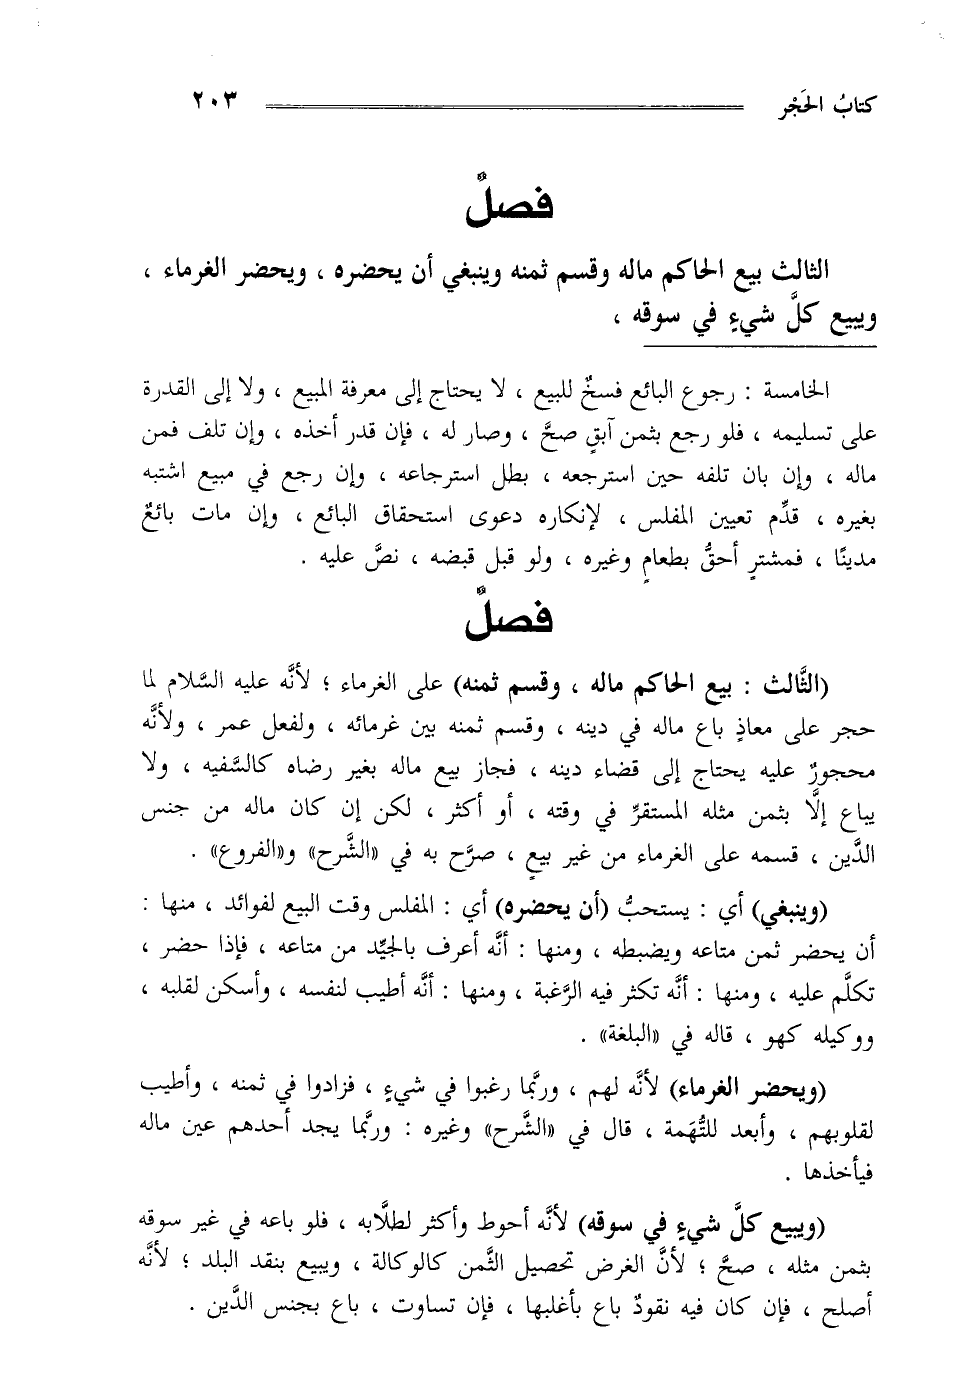 كتابُ الحَجْر ٢٠٣
فصلٌ
الثالث بيع الحاكم ماله وقسم ثمنه وينبغي أن يحضره ، ويحضر الغرماء ،
ويبيع كلَّ شيءٍ في سوقه ،
الخامسة : رجوع البائع فسخٌ للبيع ، لا يحتاج إلى معرفة المبيع ، ولا إلى القدرة
على تسليمه ، فلو رجع بثمن آبقٍ صحَّ ، وصار له ، فإن قدر أخذه ، وإن تلف فمن
ماله ، وإن بان تلفه حين استرجعه ، بطل استرجاعه ، وإن رجع في مبيع اشتبه
بغيره ، قدِّم تعيين المفلس ، لإنكاره دعوى استحقاق البائع ، وإن مات بائعٌ
مدينًا ، فمشترٍ أحقُّ بطعامٍ وغيره ، ولو قبل قبضه ، نصَّ عليه .
فصلٌ
(الثَّالث : بيع الحاكم ماله ، وقسم ثمنه) على الغرماء ؛ لأنَّه عليه السَّلام لما
حجر على معاذٍ باع ماله في دينه ، وقسم ثمنه بين غرمائه ، ولفعل عمر ، ولأنَّه
محجورٌ عليه يحتاج إلى قضاء دينه ، فجاز بيع ماله بغير رضاه كالسَّفيه ، ولا
يباع إلَّا بثمن مثله المستقرِّ في وقته ، أو أكثر ، لكن إن كان ماله من جنس
الدَّين ، قسمه على الغرماء من غير بيعٍ ، صرَّح به في «الشَّرح» و«الفروع» .
(وينبغي) أي : يستحبُّ (أن يحضره) أي : المفلس وقت البيع لفوائد ، منها :
أن يحضر ثمن متاعه ويضبطه ، ومنها : أنَّه أعرف بالجيِّد من متاعه ، فإذا حضر ،
تكلَّم عليه ، ومنها : أنَّه تكثر فيه الرَّغبة ، ومنها : أنَّه أطيب لنفسه ، وأسكن لقلبه ،
ووكيله كهو ، قاله في «البلغة» .
(ويحضر الغرماء) لأنَّه لهم ، وربَّما رغبوا في شيءٍ ، فزادوا في ثمنه ، وأطيب
لقلوبهم ، وأبعد للتُّهَمة ، قال في «الشَّرح» وغيره : وربَّما يجد أحدهم عين ماله
فيأخذها .
(ويبيع كلَّ شيءٍ في سوقه) لأنَّه أحوط وأكثر لطلَّابه ، فلو باعه في غير سوقه
بثمن مثله ، صحَّ ؛ لأنَّ الغرض تحصيل الثَّمن كالوكالة ، ويبيع بنقد البلد ؛ لأنَّه
أصلح ، فإن كان فيه نقودٌ باع بأغلبها ، فإن تساوت ، باع بجنس الدَّين .